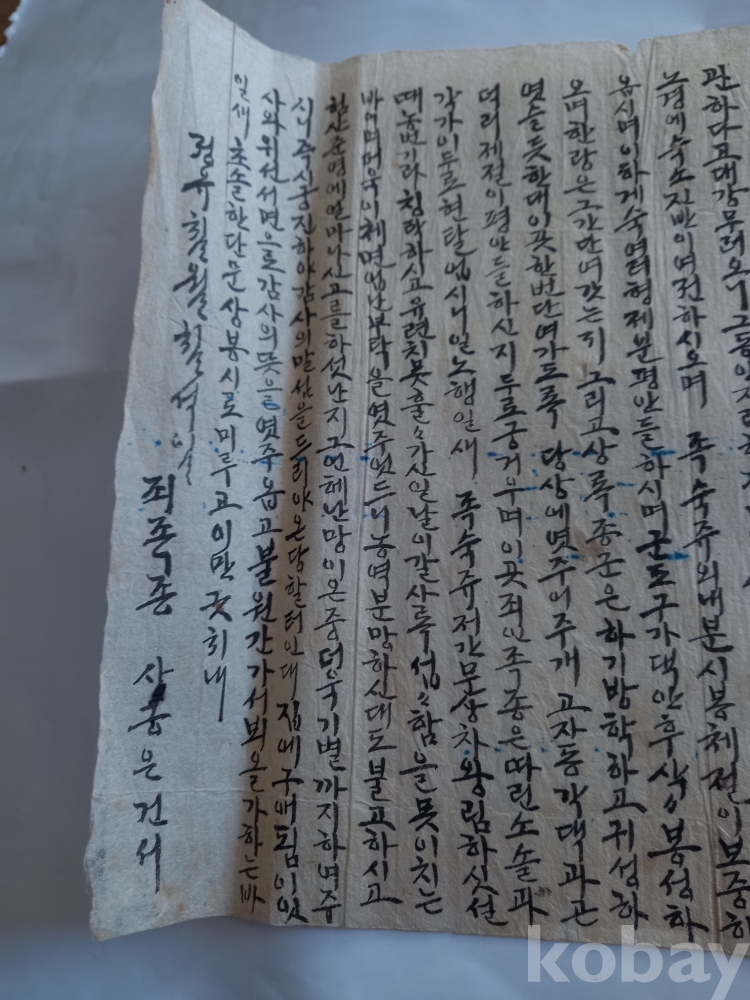 관하다고대강무러오니그동안
노경에숙소진반이여전하시오며 족숙쥬외내분시봉체절이보중하
옵시며이하게숙여러형제분평안들하시며군도구가댁안후상々봉성하
오며한랑은그간단여갓는지그리고상록종군은하기방학하고귀성하
엿슬듯한대이곳한번단여가도록 당상에엿주어주개 고자동각댁과곤
덕리제절이평안들하신지두로궁거우며이곳죄인족종은따린소솔과
각가이두로현탈업시니일노행일새 족숙쥬저간문상차왕림하섯선
때농번기라칭탁하시고유련치못훌々가신일날이갈사록섭々함을못이치는
바이며더욱이체면업난부탁을엿주엇드니농역분망하신대도불고하시고
함산준영에얼마나신고를하섯난지그언혜난망이온중더욱기별까지하여주
시니즉시궁진하야감사의말삼을드리야온당할터인대 집에구애됨이잇
사와위선서면으로감사의뜻을엿주옵고불원간가서뵈올가하는바
일새초솔한단문상봉시로미루고이만긋치내
정유칠월칠석일
죄족종 상중은건서
kobay